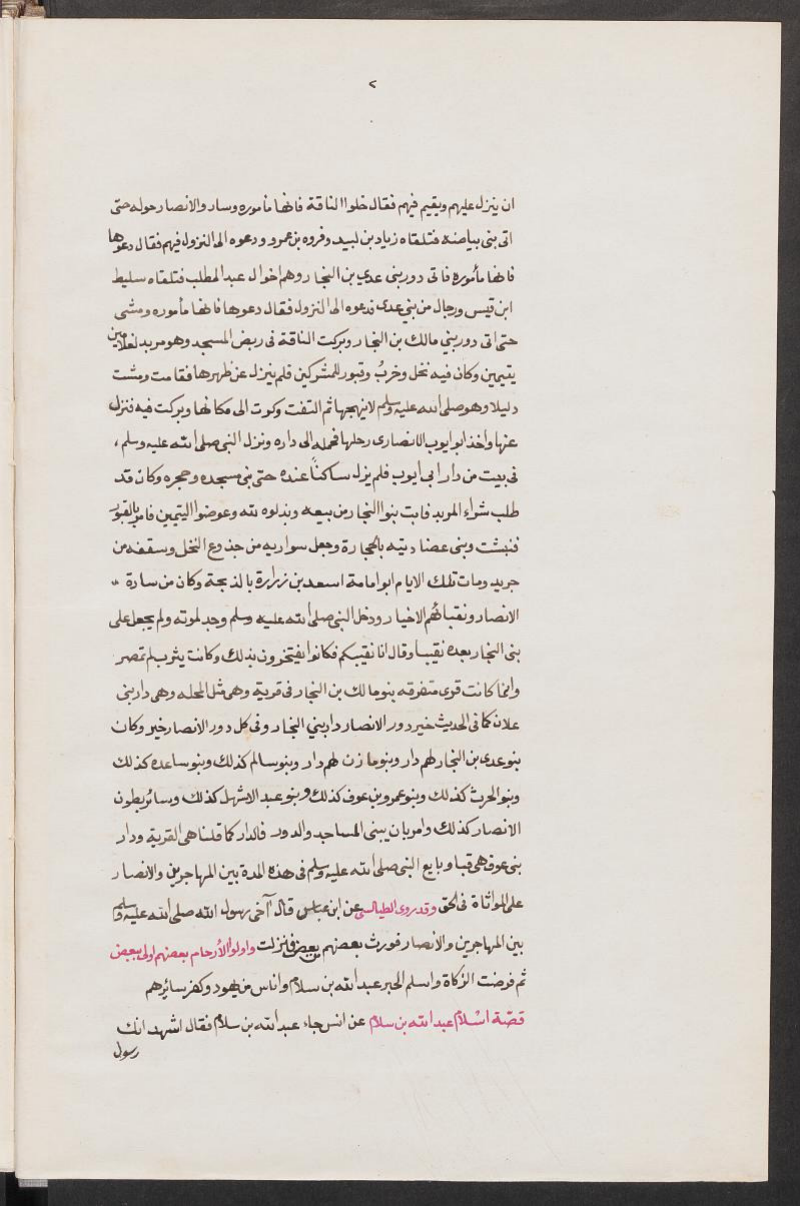 ٢
ان ينزل عليهم ويقيم فيهم فقال خلوا الناقة فانها مأموره وسار والانصار حوله حتى
اتى بنى بياضه فتلقاه زياد بن لبيد وفروه بن عمرو ودعوه الى النزول فيهم فقال دعوها
فانها مأموره فاتى دور بنى عدي بن النجار وهم اخوال عبد المطلب فتلقاه سليط
ابن قيس ورجال من بني عدى فدعوه الى النزول فقال دعوها فانها مأموره ومشى
حتى اتى دور بني مالك بن النجار وبركت الناقة فى ربض المسجد وهو مربد لغلامين
يتيمين وكان فيه نخل وخرب وقبور للمشركين فلم ينزل عن ظهرها فقامت ومشت
دليلا وهو صلى الله عليه وسلم لا يهيجها ثم التفت وكرت الى مكانها وبركت فيه فنزل
عنها واخذ ابو ايوب الانصارى رحلها فحمله الى داره ونزل النبى صلى الله عليه وسلم ،
فى بيت من دار ابى ايوب فلم يزل ساكنا عنده حتى بنى مسجده وحجره وكان قد
طلب شراء المربد فابت بنوا النجار من بيعه وبذلوه لله وعوضوا اليتمين فامر بالقبور
فنبشت وبنى عضادتيه بالحجارة وجعل سواريه من جذوع النخل وسقفه من
جريد ومات تلك الايام ابو امامة اسعد بن زرارة بالذبحة وكان من سادة
الانصار ونقبائهم الاخيار ودخل النبى صلى الله عليه وسلم وجد لموته ولم يجعل على
بنى النجار بعده نقيبا وقال انا نقيبكم فكانوا يفتخرون بذلك وكانت يثرب لم تمصر
وانما كانت قرى متفرقه بنو مالك بن النجار فى قرية وهى مثل المحله وهى دار بنى
علان كما فى الحديث خير دور الانصار دار بني النجار وفى كل دور الانصار خير وكان
بنو عدى بن النجار لهم دار وبنو مازن لهم دار وبنو سالم كذلك وبنو ساعده كذلك
وبنو الحرث كذلك وبنو عمرو بن عوف كذلك وبنو عبد الاشهل كذلك وسائر بطون
الانصار كذلك وامر بان يبنى المساجد والدور فالدار كما قلنا هى القرية ودار
بنى عوف هى قبا وبايع النبى صلى الله عليه وسلم فى هذه المدة بين المهاجرين والانصار
على المواثاة فى الحق وقد روى الطيالسى عن ابن عباس قال آخى رسول الله صلى الله عليه وسلم
بين المهاجرين والانصار فورث بعضهم من بعض فنزلت واولو الأرحام بعضهم اولى ببعض
ثم فرضت الزكاة واسلم الحبر عبد الله بن سلام واناس من يهود وكفر سائرهم
قصّة اسْلام عبد الله بن سلام عن انس جاء عبد الله بن سلام فقال اشهد انك
رسول